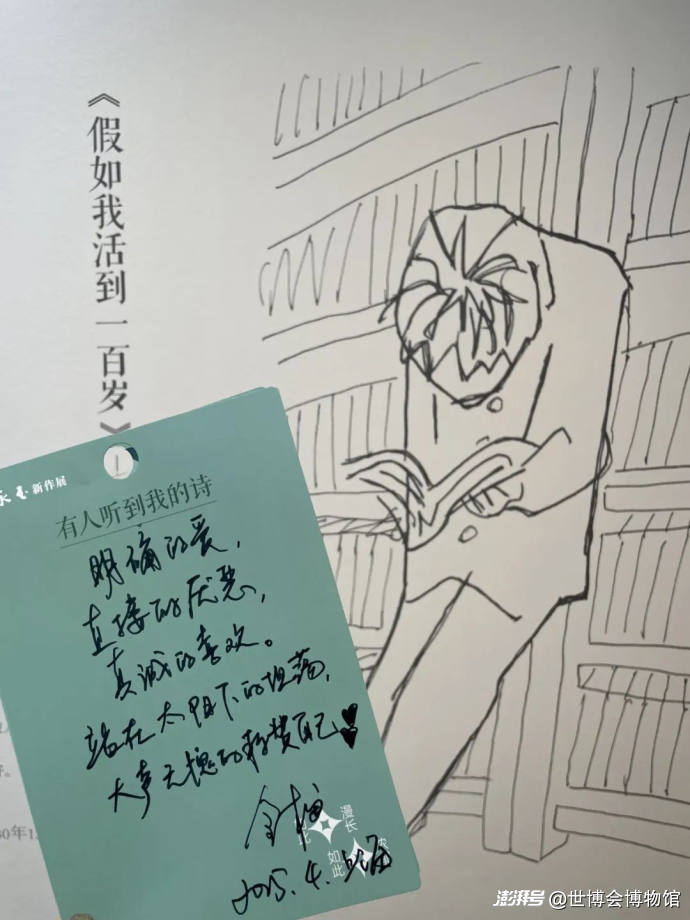 《假如我活到一百岁》
永玉 新作展
有人听到我的诗
明确的爱，
直接的厌恶，
真诚的喜欢。
站在太阳下的坦荡，
大声无愧的称赞自己
漫长
如此
2025.4.上海
30年1
澎湃号@世博会博物馆